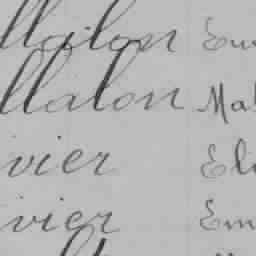 llalon Eu
llalon Mal
vier El
vier Em